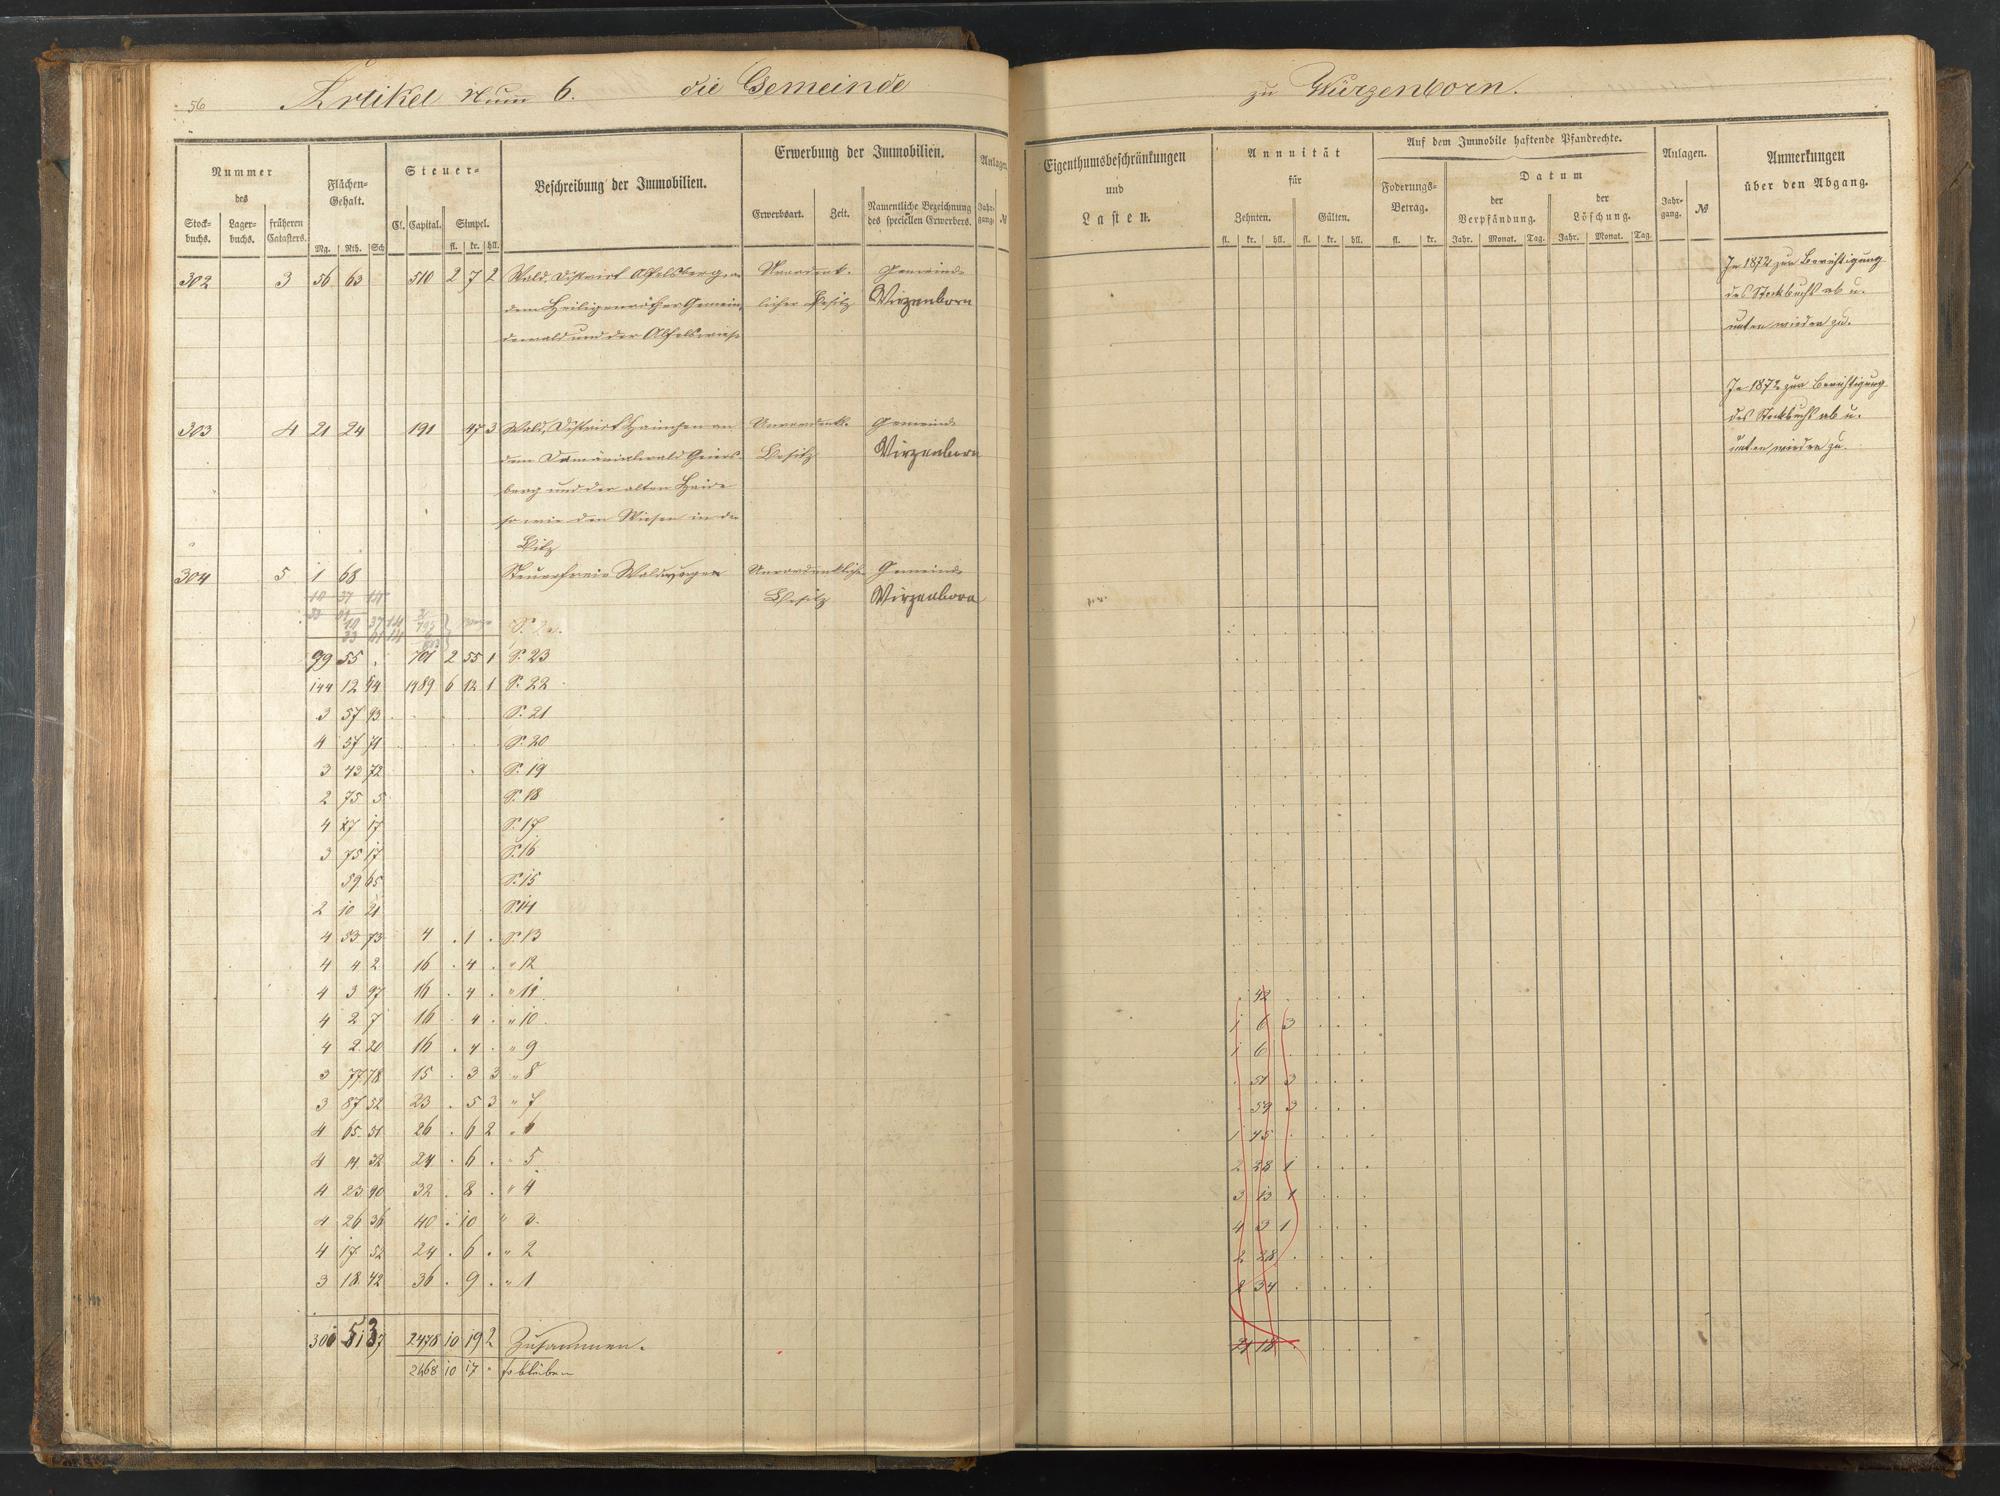 56
Artikel Num 6. die Gemeinde zu Würzenborn.
Nummer
des
Stock-
buchs.
Lager-
buchs.
früheren
Catasters.
Flächen-
Gehalt.
Mg. Rth. Sch
Steuer-
Cl. Capital. Simpel.
fl. kr. hll.
Beschreibung der Immobilien.
Erwerbung der Immobilien.
Erwerbsart. Zeit.
Namentliche Bezeichnung
des speciellen Erwerbers.
Anlagen.
Jahr-
gang. №
Eigenthumsbeschränkungen
und
Lasten.
Annuität
für
Zehnten. Gülten.
fl. kr. hll. fl. kr. hll.
Auf dem Immobile haftende Pfandrechte.
Foderungs-
Betrag.
fl. kr.
Datum
der
Verpfändung.
Jahr. Monat. Tag.
der
Löschung.
Jahr. Monat. Tag.
Anlagen.
Jahr-
gang. №
Anmerkungen
über den Abgang.
302 3 56 63 510 2 7 2 Wald, District an
dem Heiligenrother Gemein-
dewald und der
Gemeinde
licher Besitz Wirzenborn
In 1872 zur Berichtigung
des Stockbuchs ab u.
unten wieder zu.
303 4 21 24 191 47 3 Wald, District Hainchen an
dem Domänialwald Geiers-
berg und der alten Heide
so wie den Wiesen in der
Gemeinde
Besitz Wirzenborn
In 1872 zur Berichtigung
des Stockbuchs ab u.
unten wieder zu.
304 5 1 68 Steuerfreie Waldwege Unvordenklicher Gemeinde
Besitz Wirzenborn
99 55 . 701 2 55 1 S. 23
144 12 44 1489 6 12 1 S. 22
3 57 93 S. 21
4 57 71 S. 20
3 43 72 S. 19
2 75 5 S. 18
4 17 S. 17
3 75 17 S. 16
59 65 S. 15
2 10 21 S. 14
4 53 73 4 . 1 . S. 13
4 4 2 16 . 4 . " 12
4 3 97 16 . 4 . " 11 . 42 .
4 2 7 16 . 4 . " 10 1 6 3
4 2 20 16 . 4 . " 9 1 6 .
3 77 78 15 . 3 3 " 8 . 51 3
3 87 52 23 . 5 3 " 7 . 59 3
4 65 51 26 . 6 2 " 6 1 45 .
4 14 32 24 . 6 . " 5 2 28 1
4 23 90 32 . 8 . " 4 3 13 1
4 26 36 40 . 10 " 3. 4 3 1
4 17 52 24 . 6 . " 2 2 28 .
3 18 42 36 . 9 . " 1 2 34 .
306 51 37 2478 10 19 2 Zusammen. 21 18
2468 10 17 . so bleiben